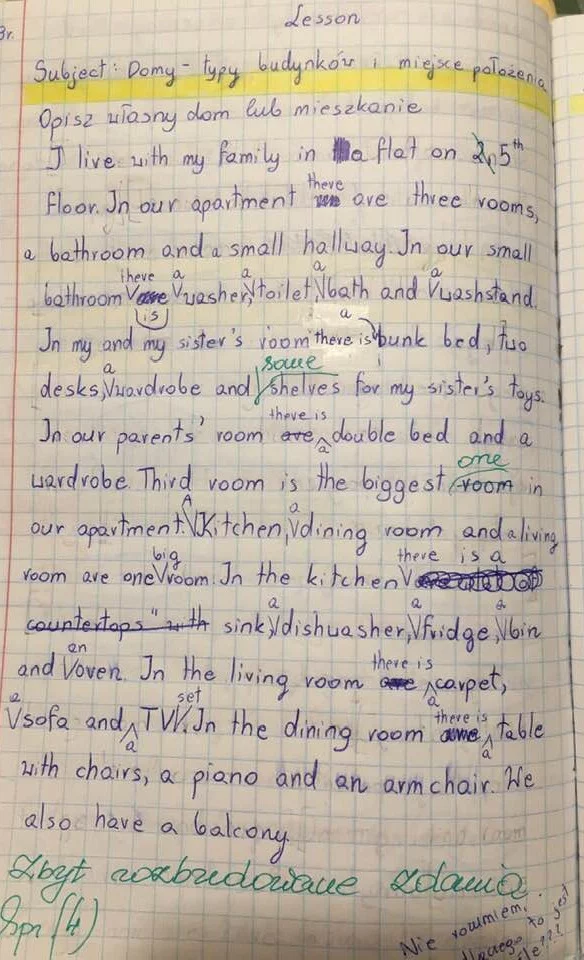 3r.
Lesson
Subject: Domy - typy budynków i miejsce położenia
Opisz własny dom lub mieszkanie
I live with my family in a flat on 5th
floor. In our apartment there are three rooms,
a bathroom and a small hallway. In our small
bathroom there is a washer, a toilet, a bath and a washstand.
In my and my sister's room there is a bunk bed, two
desks, a wardrobe and some shelves for my sister's toys.
In our parents' room there is a double bed and a
wardrobe. Third room is the biggest room one in
our apartment. A Kitchen, a dining room and a living
room are one big room. In the kitchen there is a
countertops" with sink, a dishwasher, a fridge, a bin
and an oven. In the living room there is a carpet,
a sofa and a TV set. In the dining room there is a table
with chairs, a piano and an armchair. We
also have a balcony.
Zbyt rozbudowane zdania.
Spr (4)
Nie rozumiem,
dlaczego to jest
źle???